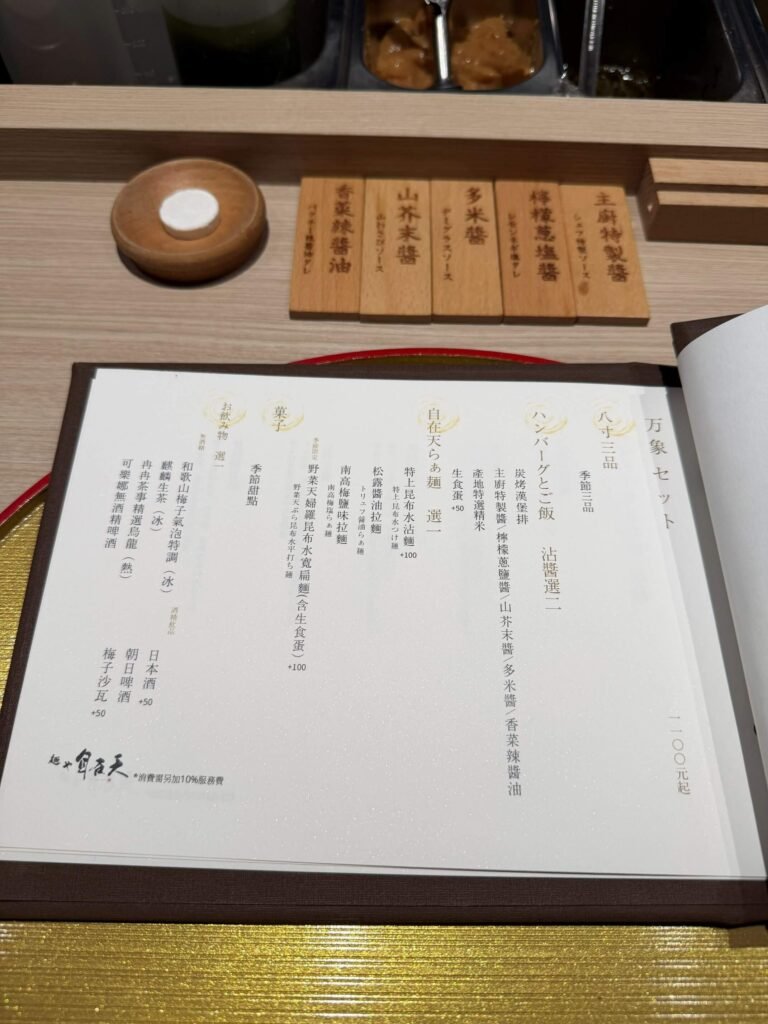 主廚特製醬
シェフ特製ソース
檸檬蔥塩醬
レモンネギ塩ダレ
多米醬
デミグラスソース
山芥末醬
山わさびソース
香菜辣醬油
パクチー辣醤油ダレ
万象 セット
一一〇〇元起
八寸三品
季節三品
ハンバーグとご飯 沾醬選二
炭烤漢堡排
主廚特製醬/檸檬蔥鹽醬/山芥末醬/多米醬/香菜辣醬油
產地特選精米
生食蛋 +50
自在天らぁ麺 選一
特上昆布水沾麵 +100
特上昆布水つけ麺
松露醬油拉麵
トリュフ醤油らぁ麺
南高梅鹽味拉麵
南高梅塩らぁ麺
季節限定
野菜天婦羅昆布水寬扁麵(含生食蛋) +100
野菜天ぷら昆布水平打ち麺
菓子
季節甜點
お飲み物 選一
無酒精
和歌山梅子氣泡特調(冰)
麒麟生茶(冰)
冉冉茶事精選烏龍(熱)
可樂娜無酒精啤酒
酒精飲品
日本酒 +50
朝日啤酒
梅子沙瓦 +50
麺や 自在天
*消費需另加10%服務費